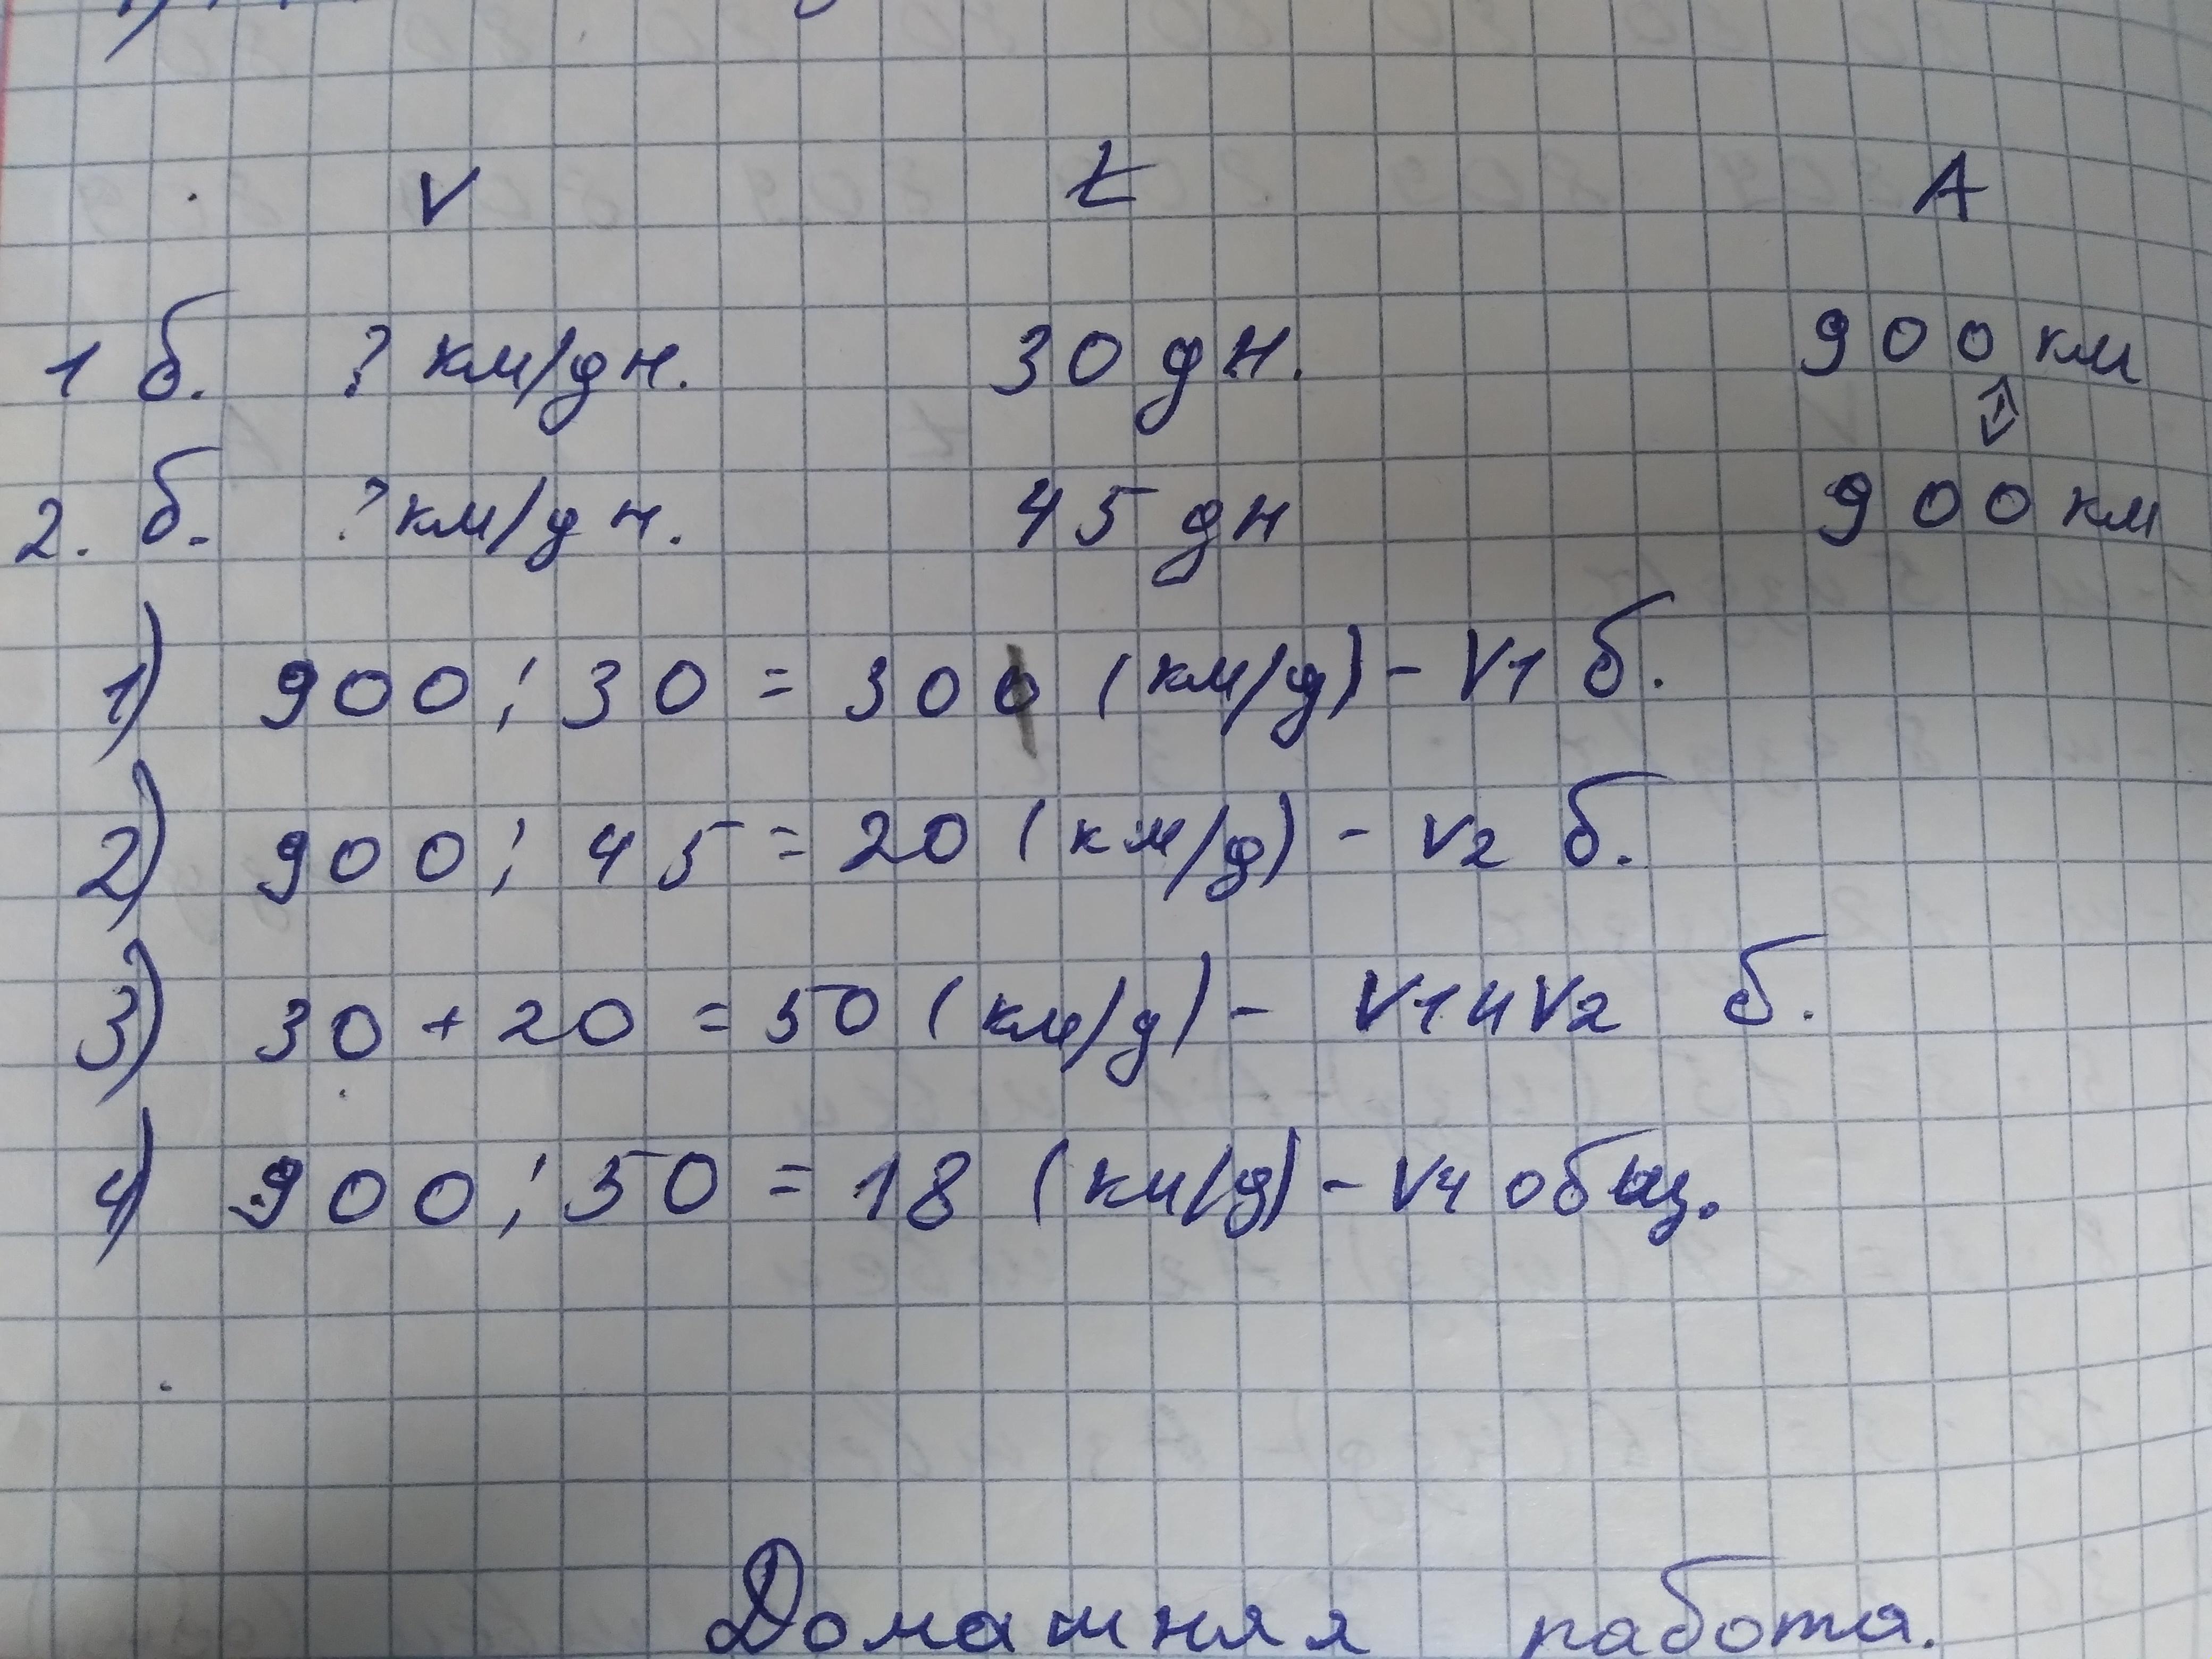 V t A
1 б. ? км/дн. 30 дн. 900 км
2. б. ? км/дн. 45 дн 900 км
1) 900 : 30 = 300 (км/д) - V1 б.
2) 900 : 45 = 20 (км/д) - V2 б.
3) 30 + 20 = 50 (км/д) - V1 и V2 б.
4) 900 : 50 = 18 (км/д) - V4 общ.
Домашняя работа.